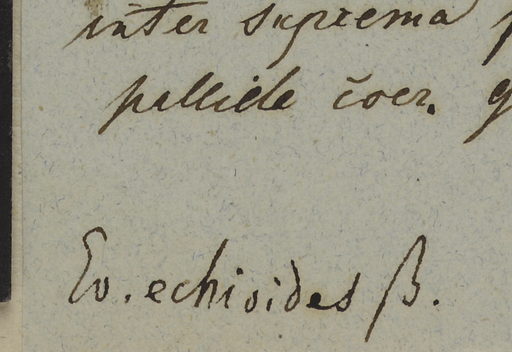 inter suprema
pallide coer.
Ev. echioides β.